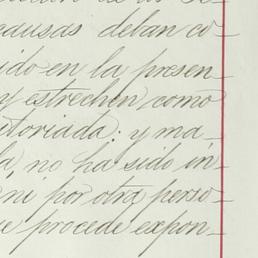 causas deban co-
ido en la presen-
y estrechen como
itoriada: y ma-
la, no ha sido in-
ni por otra perso-
e procede expon-